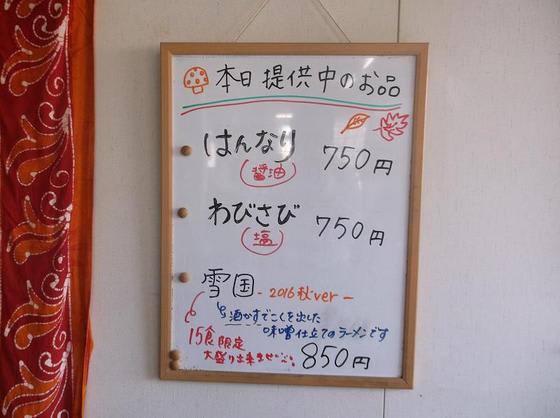 本日提供中のお品
はんなり 750円
(醤油)
わびさび 750円
(塩)
雪国 - 2016秋ver -
酒かすでこくを出した
味噌仕立てのラーメンです
15食限定
大盛り出来ませ
850円